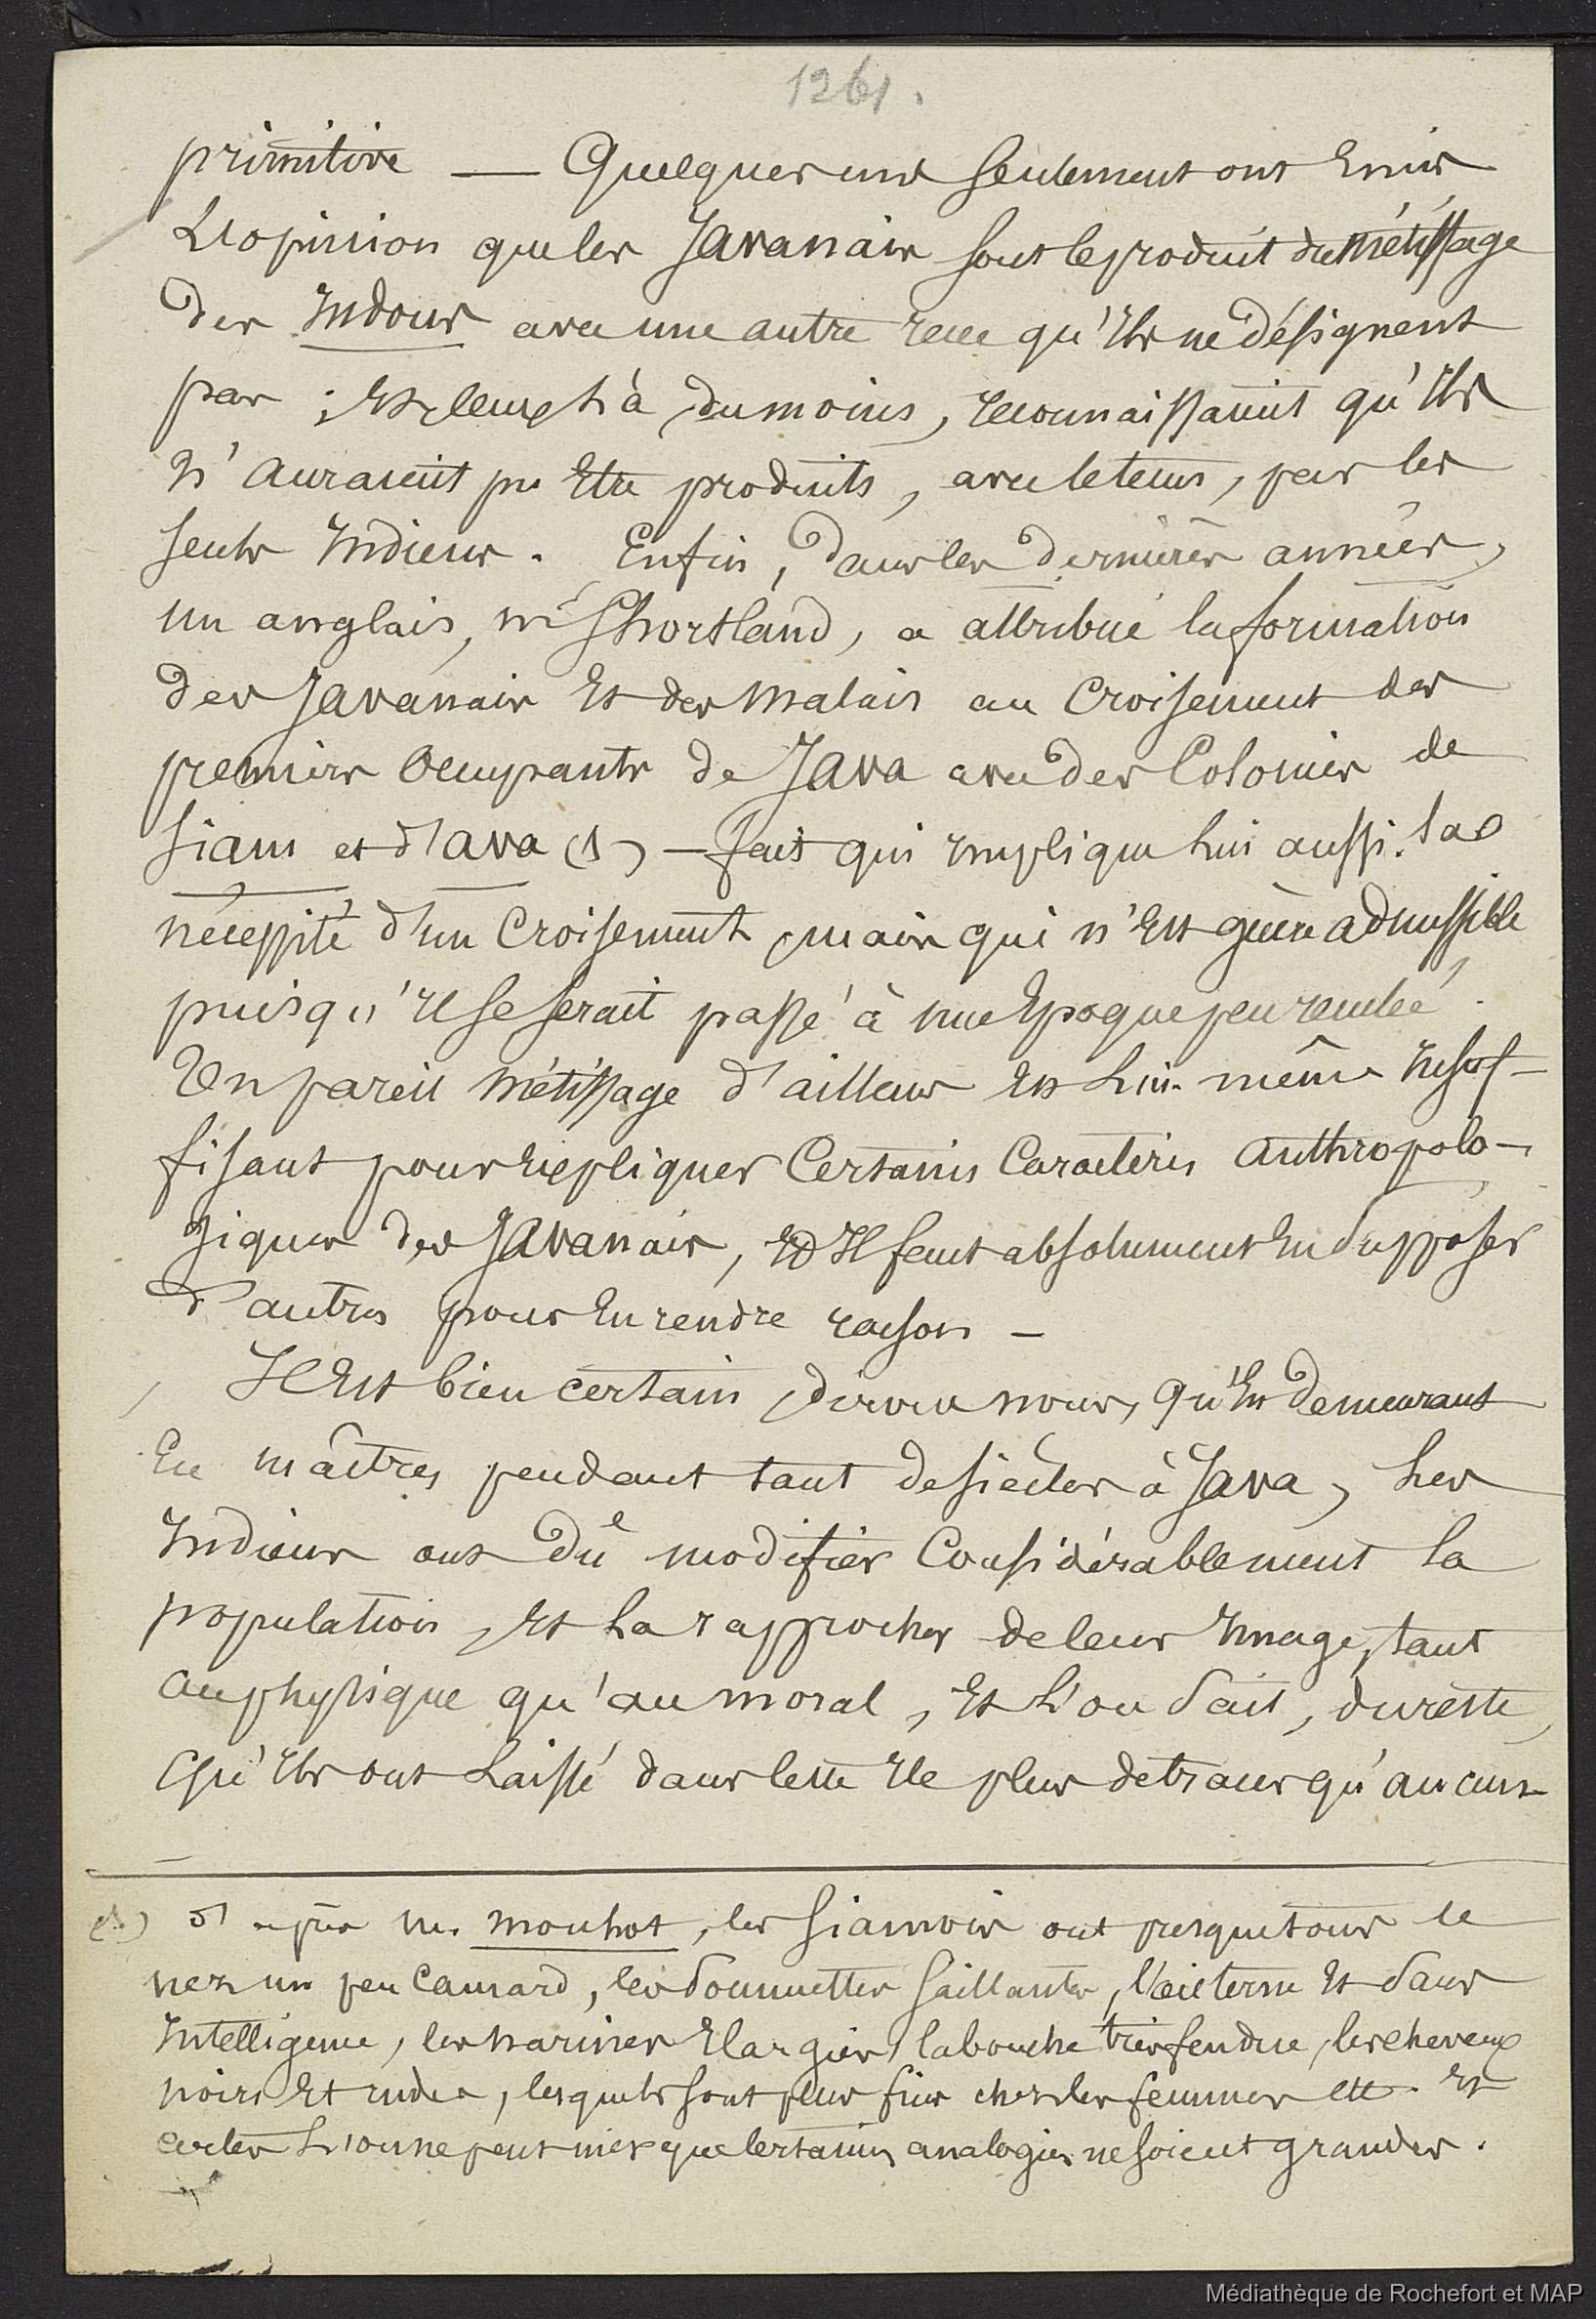 1261.
primitive — Quelques uns seulement ont Emis
L'opinion que les Javanais sont le produit du métissage
des Indous avec une autre race qu'Ils ne désignent
pas ; Et, leurs à du moins, reconnaissaient qu'Ils
n'auraient pu Etre produits, avec le tems, par les
seuls Indiens. Enfin, dans les dernières années,
un anglais, mr Shortland, a attribué la formation
des Javanais Et des Malais au Croisement des
premiers occupants de Java avec des Colonies de
Siam et d'ava (1) — fait qui Implique lui aussi la
nécessité d'un Croisement, mais qui n'Est guère admissible
puisqu'Il se serait passé à une Epoque peu reculée.
Un pareil métissage d'ailleurs Est lui-même Insuf-
fisant pour Expliquer Certains Caractères anthropolo-
giques des Javanais, Et Il faut absolument En supposer
d'autres pour En rendre raison —
Il Est bien certain, dirons nous, qu'En demeurant
En maîtres pendant tant de siècles à Java, Les
Indiens ont dû modifier Considérablement la
population, Et La rapprocher de leur Image, tant
au physique qu'au moral, Et L'on sait, du reste,
qu'Ils ont Laissé dans cette Ile plus de traces qu'aucun
(1) d'après M. Mouhot, les Siamois ont presque tous le
nez un peu Camard, les Pommettes saillantes, l'œil terne Et sans
Intelligence, les narines Elargies, la bouche très fendue, les cheveux
noirs Et rudes, lesquels sont plus fins chez les femmes etc. Et
certes L'on ne peut nier que Certaines analogies ne soient grandes.
Médiathèque de Rochefort et MAP